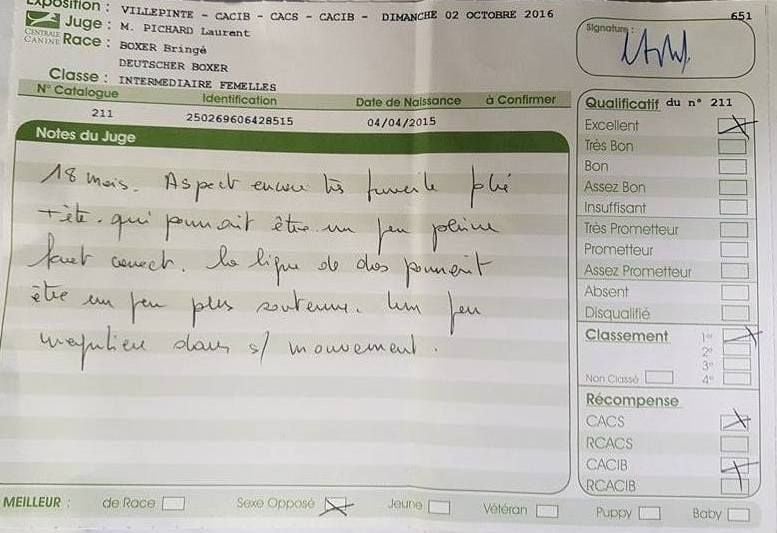 Exposition : VILLEPINTE - CACIB - CACS - CACIB - DIMANCHE 02 OCTOBRE 2016
651
CENTRALE CANINE
Juge : M. PICHARD Laurent
Race : BOXER Bringé
DEUTSCHER BOXER
Classe : INTERMEDIAIRE FEMELLES
Signature :
N° Catalogue Identification Date de Naissance à Confirmer
211 250269606428515 04/04/2015
Notes du Juge
18 mois. Aspect encore très juvénile
tête. qui pourrait être un peu pleine
correct. la ligne de dos pourrait
être un peu plus soutenue. Un peu
dans s/ mouvement.
Qualificatif du n° 211
Excellent
Très Bon
Bon
Assez Bon
Insuffisant
Très Prometteur
Prometteur
Assez Prometteur
Absent
Disqualifié
Classement 1er
2e
3e
Non Classé 4e
Récompense
CACS
RCACS
CACIB
RCACIB
MEILLEUR : de Race Sexe Opposé Jeune Vétéran Puppy Baby